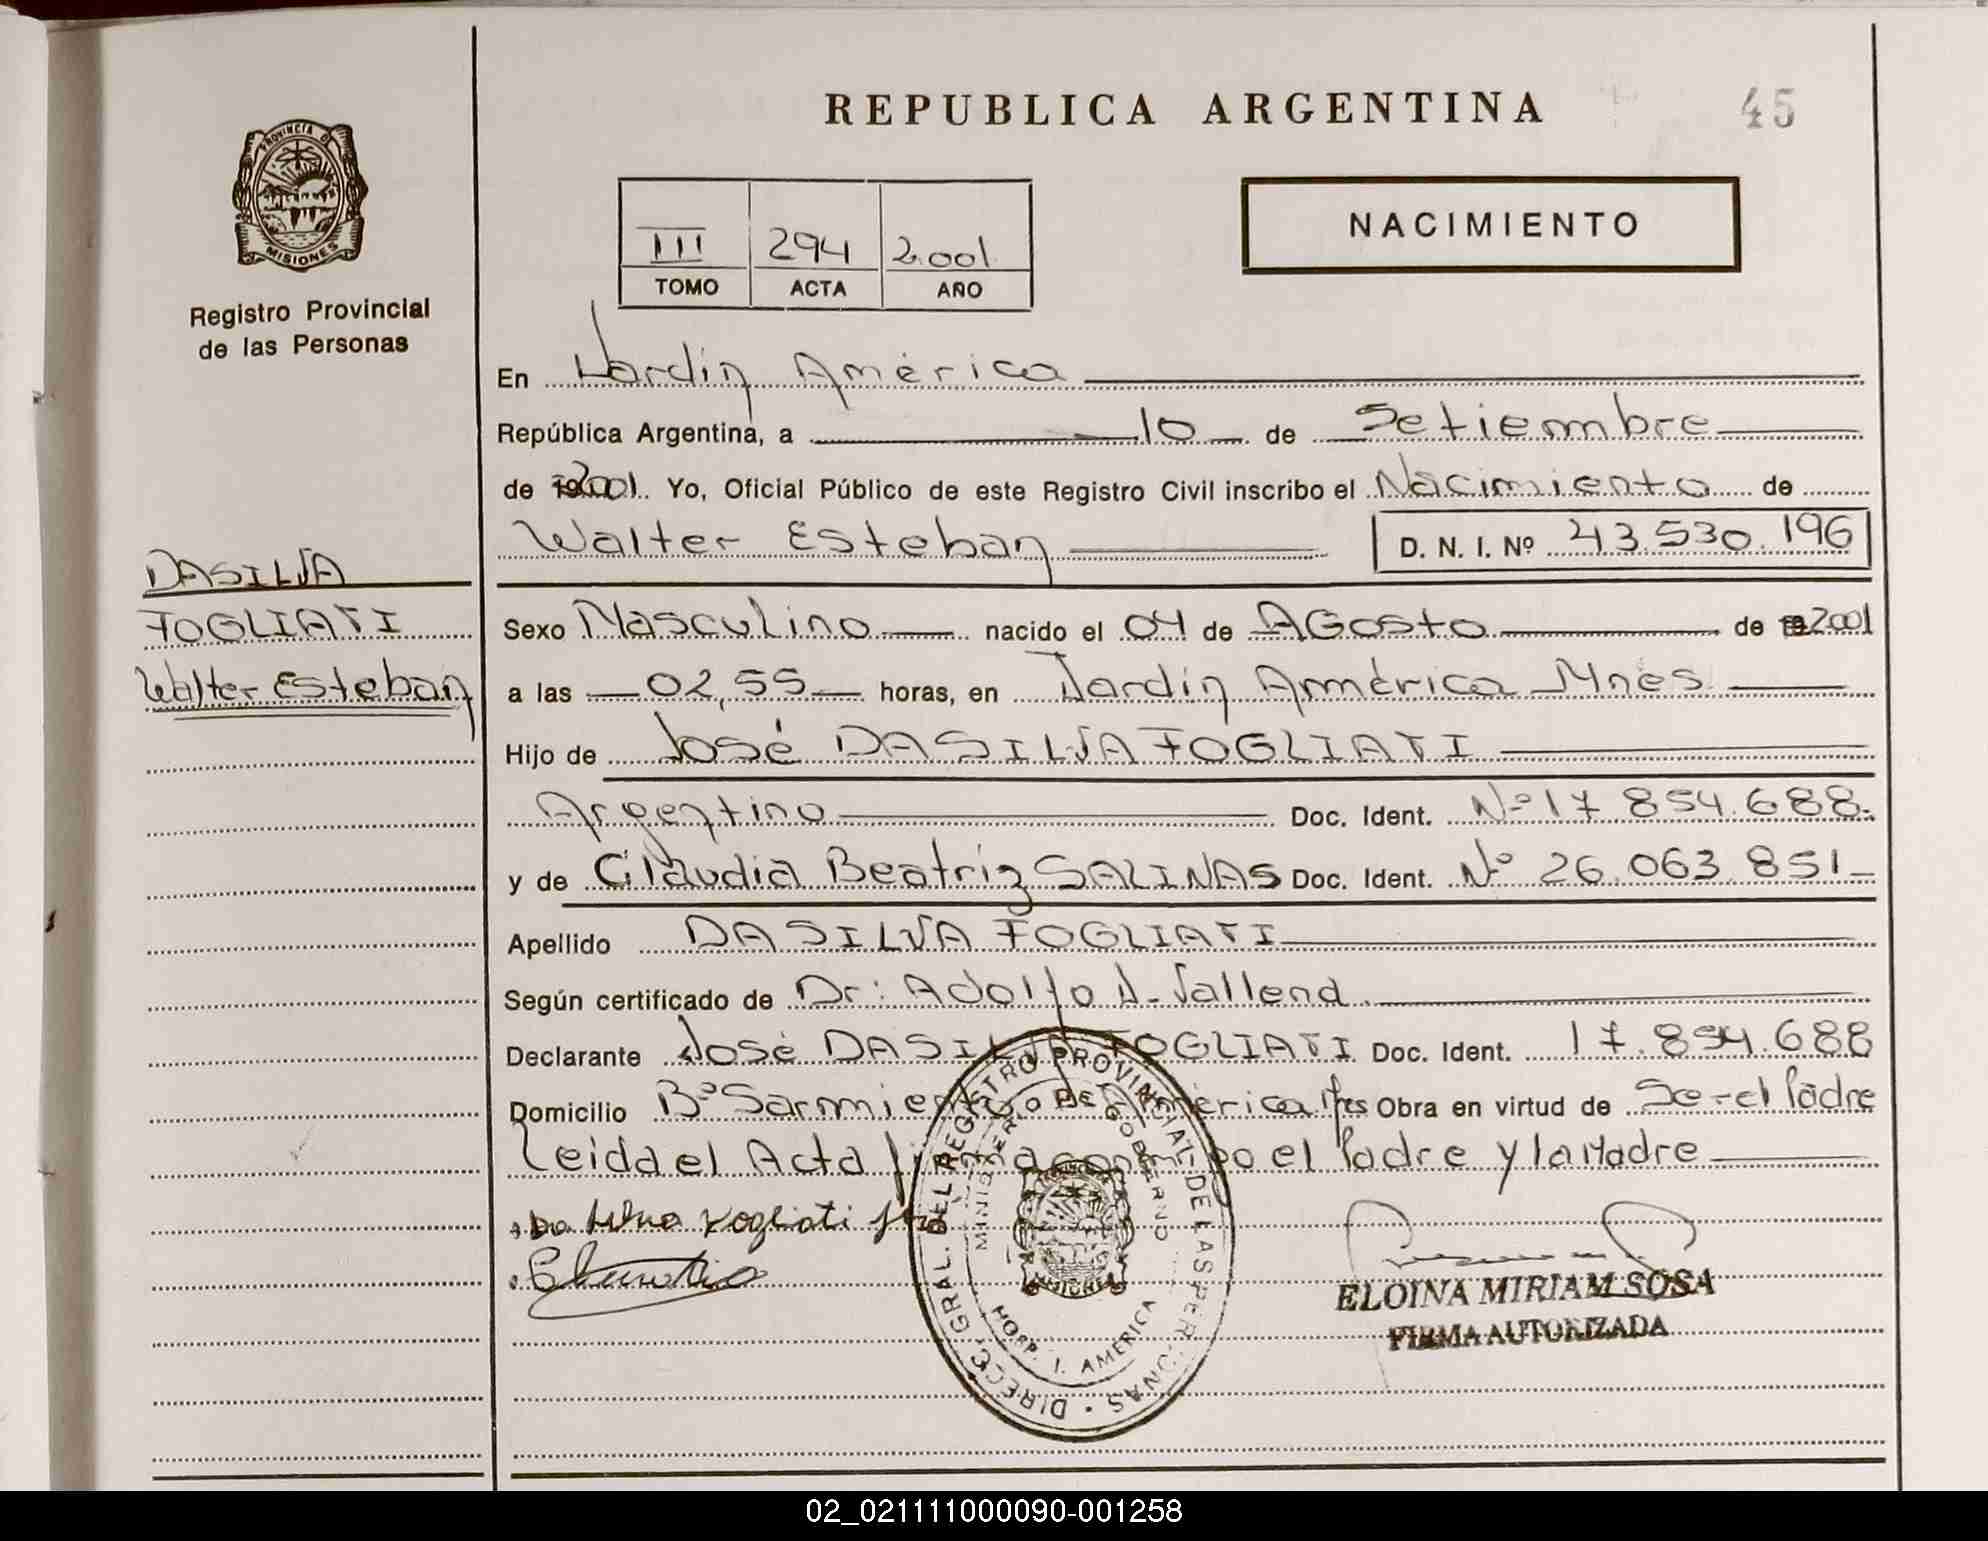 REPUBLICA ARGENTINA
45
PROVINCIA D
MISIONES
Registro Provincial
de las Personas
III 294 2.001
TOMO ACTA AÑO
NACIMIENTO
En Jardín América
República Argentina, a 10 de Setiembre
de 2001. Yo, Oficial Público de este Registro Civil inscribo el Nacimiento de
Walter Esteban D. N. I. Nº 43.530.196
DASILVA
FOGLIATI
Walter Esteban
Sexo Masculino nacido el 04 de AGosto de 2001
a las 02,55 horas, en Jardín América Mnes
Hijo de José DASILVA FOGLIATI
Argentino Doc. Ident. Nº 17.854.688.
y de Claudia Beatriz SALINAS Doc. Ident. Nº 26.063.851
Apellido DASILVA FOGLIATI
Según certificado de Dr: Adolfo
Declarante José DASILVA FOGLIATI Doc. Ident. 17.854.688
Domicilio Bº Sarmiento América Obra en virtud de Ser el Padre
Leida el Acta firma el Padre y la Madre
Fogliati
DIRECC. GRAL. DEL REGISTRO PROVINCIAL DE LAS PERSONAS
MINISTERIO DE GOBIERNO
MISIONES
HOSP. J. AMERICA
ELOINA MIRIAM SOSA
FIRMA AUTORIZADA
02_021111000090-001258